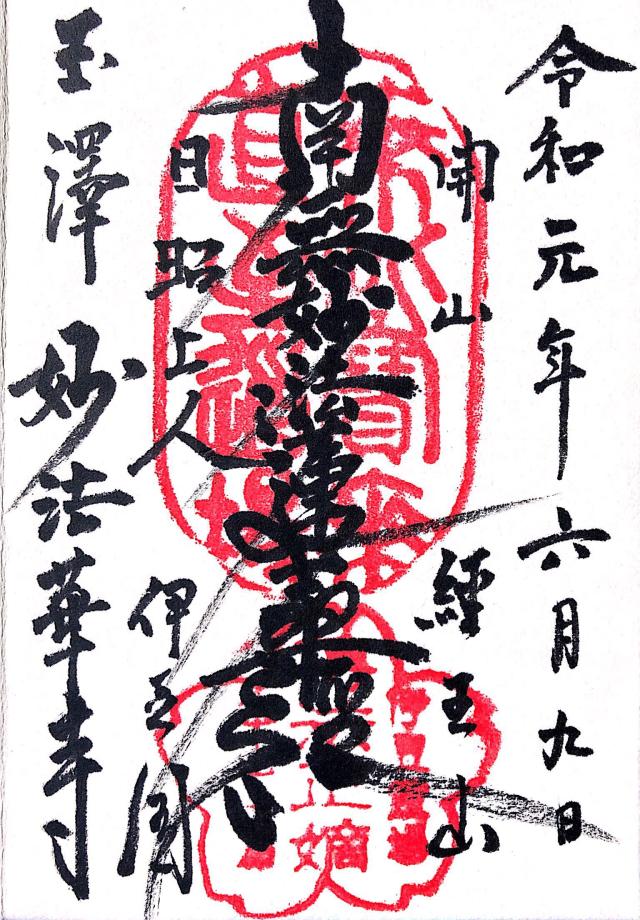 令和元年六月九日
開山
経王山
南無妙法蓮華経
日昭上人
伊豆国
玉澤
妙法華寺